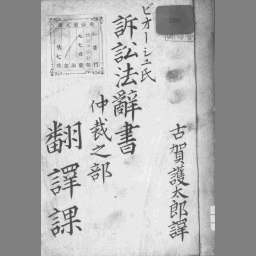 ビオーシュ氏
訴訟法辭書
仲裁之部
古賀護太郎譯
翻譯課